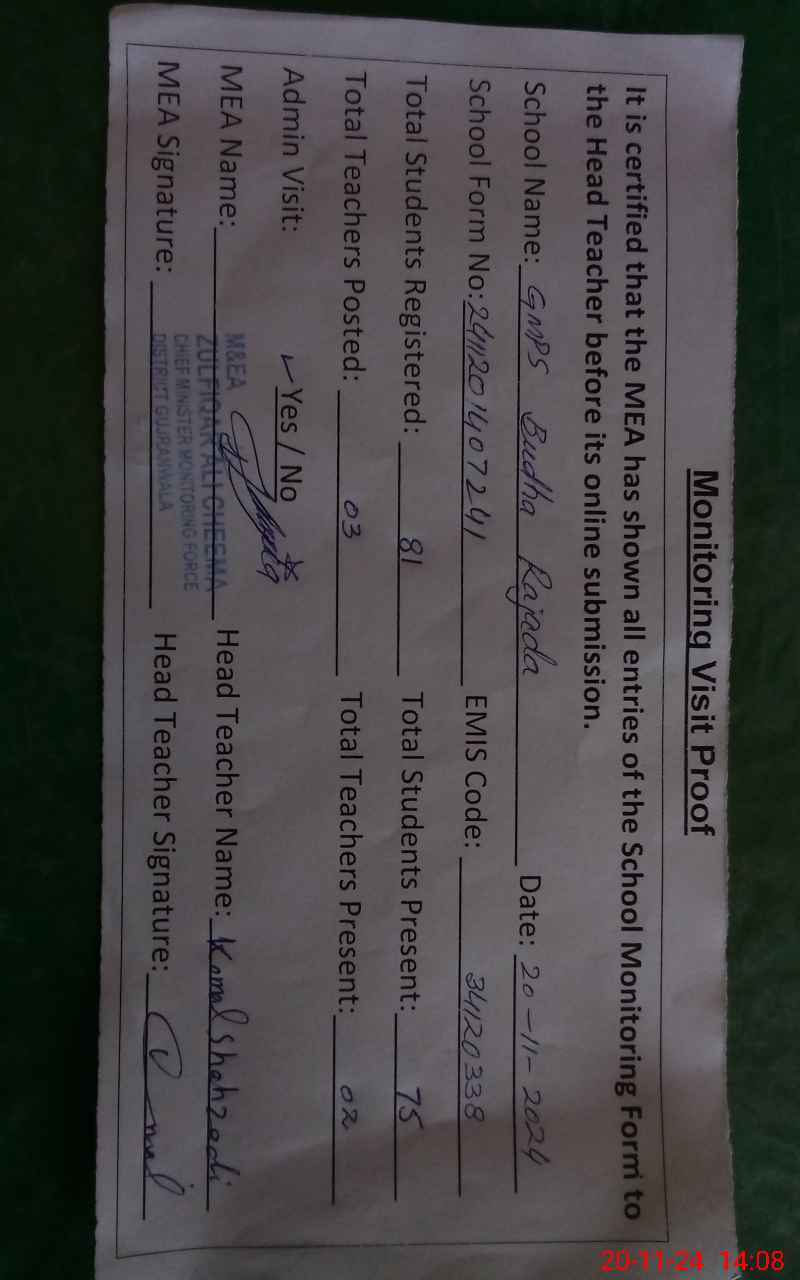 Monitoring Visit Proof
It is certified that the MEA has shown all entries of the School Monitoring Form to
the Head Teacher before its online submission.
School Name: GMPS Budha Rajada Date: 20-11-2024
School Form No: 2411201407241 EMIS Code: 34120338
Total Students Registered: 81 Total Students Present: 75
Total Teachers Posted: 03 Total Teachers Present: 02
Admin Visit: ✓ Yes / No
MEA Name: M&EA ZULFIQAR ALI CHEEMA Head Teacher Name: Komal Shahzadi
CHIEF MINISTER MONITORING FORCE
MEA Signature: DISTRICT GUJRANWALA Head Teacher Signature:
20-11-24 14:08